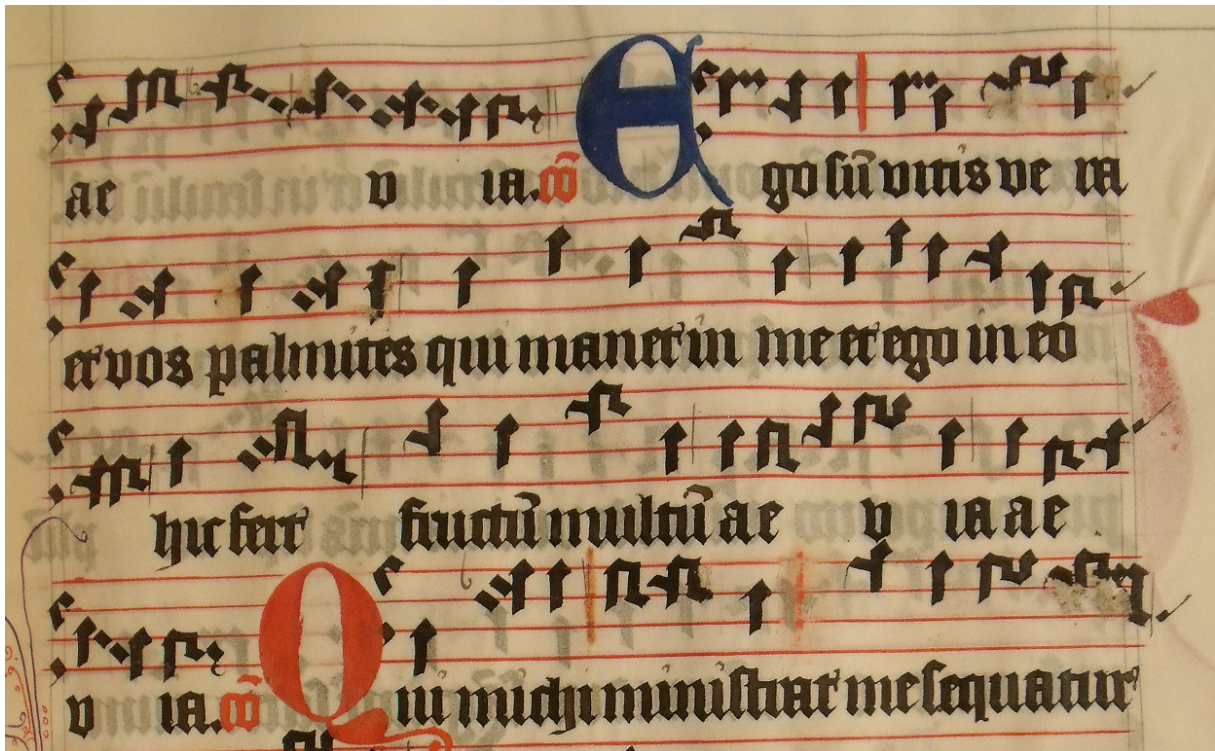 ae v ia. c̄o Ego sū vitis ve ra
et vos palmites qui manet in me et ego in eo
hic fert fructū multū ae v ia ae
v ia. c̄o Qui michi ministrat me sequatur